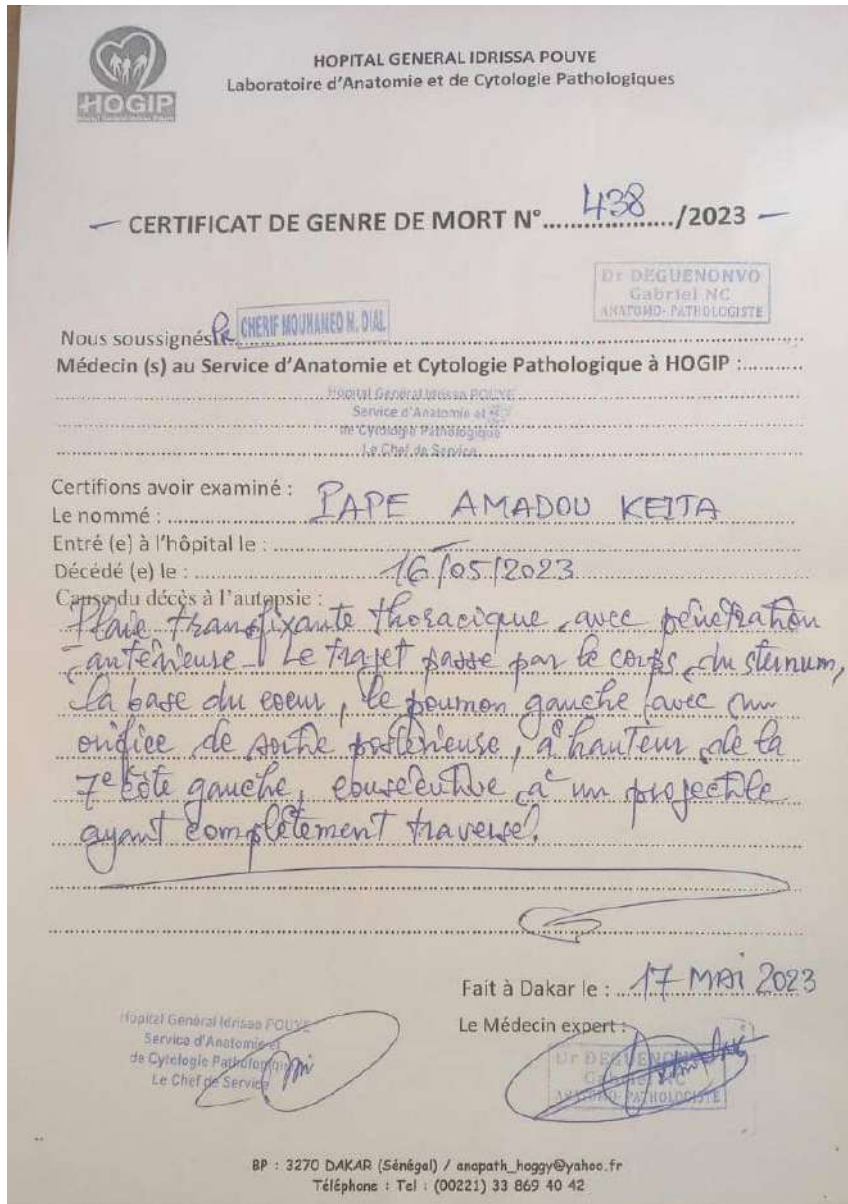 HOGIP
HOPITAL GENERAL IDRISSA POUYE
Laboratoire d'Anatomie et de Cytologie Pathologiques
— CERTIFICAT DE GENRE DE MORT N°....438..../2023 —
Dr DEGUENONVO
Gabriel NC
ANATOMO-PATHOLOGISTE
Nous soussignés Pr CHERIF MOUHAMED M. DIAL
Médecin (s) au Service d'Anatomie et Cytologie Pathologique à HOGIP :
Hôpital Général Idrissa POUYE
Service d'Anatomie et
de Cytologie Pathologique
Le Chef de Service
Certifions avoir examiné :
Le nommé : PAPE AMADOU KEITA
Entré (e) à l'hôpital le : —
Décédé (e) le : 16/05/2023
Cause du décès à l'autopsie :
Plaie transfixante thoracique avec pénétration
antérieure. Le trajet passe par le corps du sternum,
la base du coeur, le poumon gauche avec un
orifice de sortie postérieuse, à hauteur de la
7e côte gauche, consécutive à un projectile
ayant complètement traversé.
Fait à Dakar le : 17 MAI 2023
Hôpital Général Idrissa POUYE
Service d'Anatomie et
de Cytologie Pathologique
Le Chef de Service
Le Médecin expert :
Dr DEGUENONVO
Gabriel NC
ANATOMO-PATHOLOGISTE
BP : 3270 DAKAR (Sénégal) / anapath_hoggy@yahoo.fr
Téléphone : Tel : (00221) 33 869 40 42